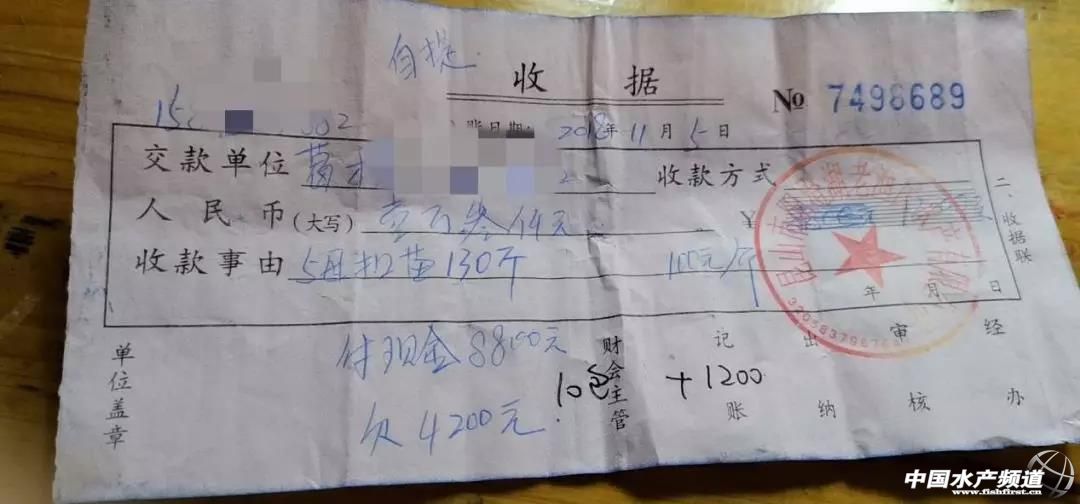 自提.
收 据
№ 7498689
2018年11月5日
交款单位
收款方式
人民币(大写) 壹万叁仟元
¥
收款事由 扣苗130斤 100元/斤
年 月 日
二、收据联
付现金8800元
欠4200元.
10包 +1200
单位盖章
财会主管
记账
出纳
审核
经办
中国水产频道
www.fishfirst.cn